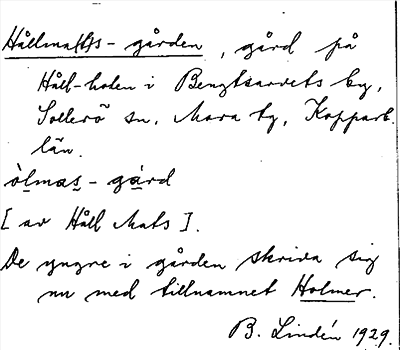 Hållma(t)s-gården, gård på
Håll-holen i Bengtsarvets by,
Sollerö sn, Mora tg, Kopparb.
län.
òlmas-gård
[av Håll Mats].
De yngre i gården skriva sig
nu med tillnamnet Holmer.
B. Lindén 1929.